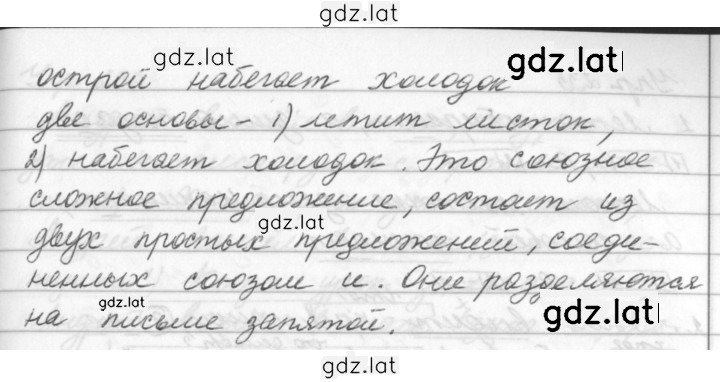 gdz.lat
gdz.lat
gdz.lat
острой набегает холодок
две основы - 1) летит листок,
2) набегает холодок. Это союзное
сложное предложение, состоит из
gdz.lat
двух простых предложений, соеди-
ненных союзом и. Они разделяются
gdz.lat
gdz.lat
на письме запятой.
gdz.lat